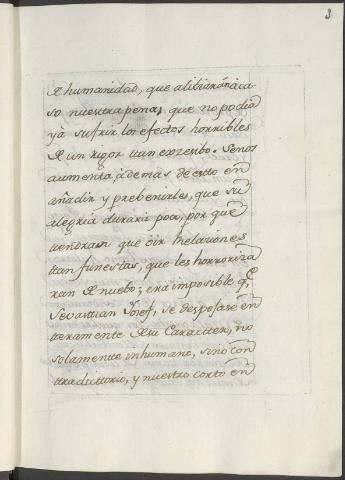 3
de humanidad, que alibiarán àca
so nuestra pena, que no podia
yà sufrir los efectos horribles
de un rigor tan exzesibo. Senos
aumenta, àdemas de esto en
añadir y prebenirles, que su
alegria durará poco, por què
tendran que oir relaziones
tan funestas, que les horroriza
ran de nuebo; era imposible q.e
Sebastian Josef, se despojase en
teramente de su Caracter, no
solamente inhumano, sino con
traductorio, y nuestro corto en